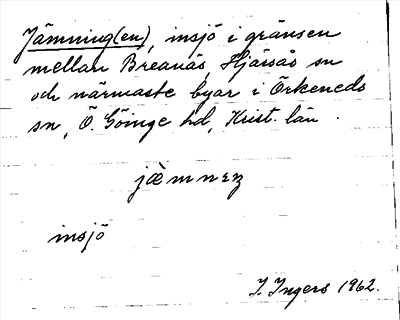 Jämning(en), insjö i gränsen
mellan Breanäs, Hjärsås sn
och närmaste byar i Örkeneds
sn, Ö. Göinge hd, Krist. län.
insjö
I. Ingers 1962.